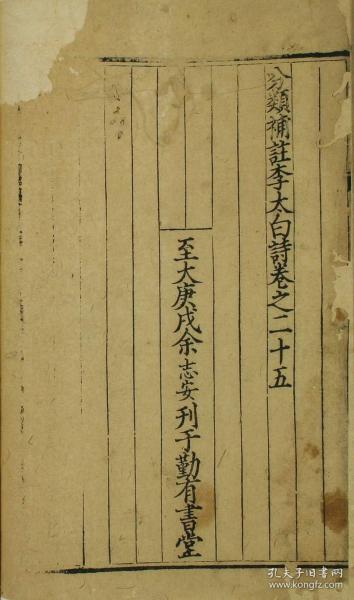 分類補註李太白詩卷之二十五
至大庚戌余志安刊于勤有書堂
孔夫子旧书网
www.kongfz.com